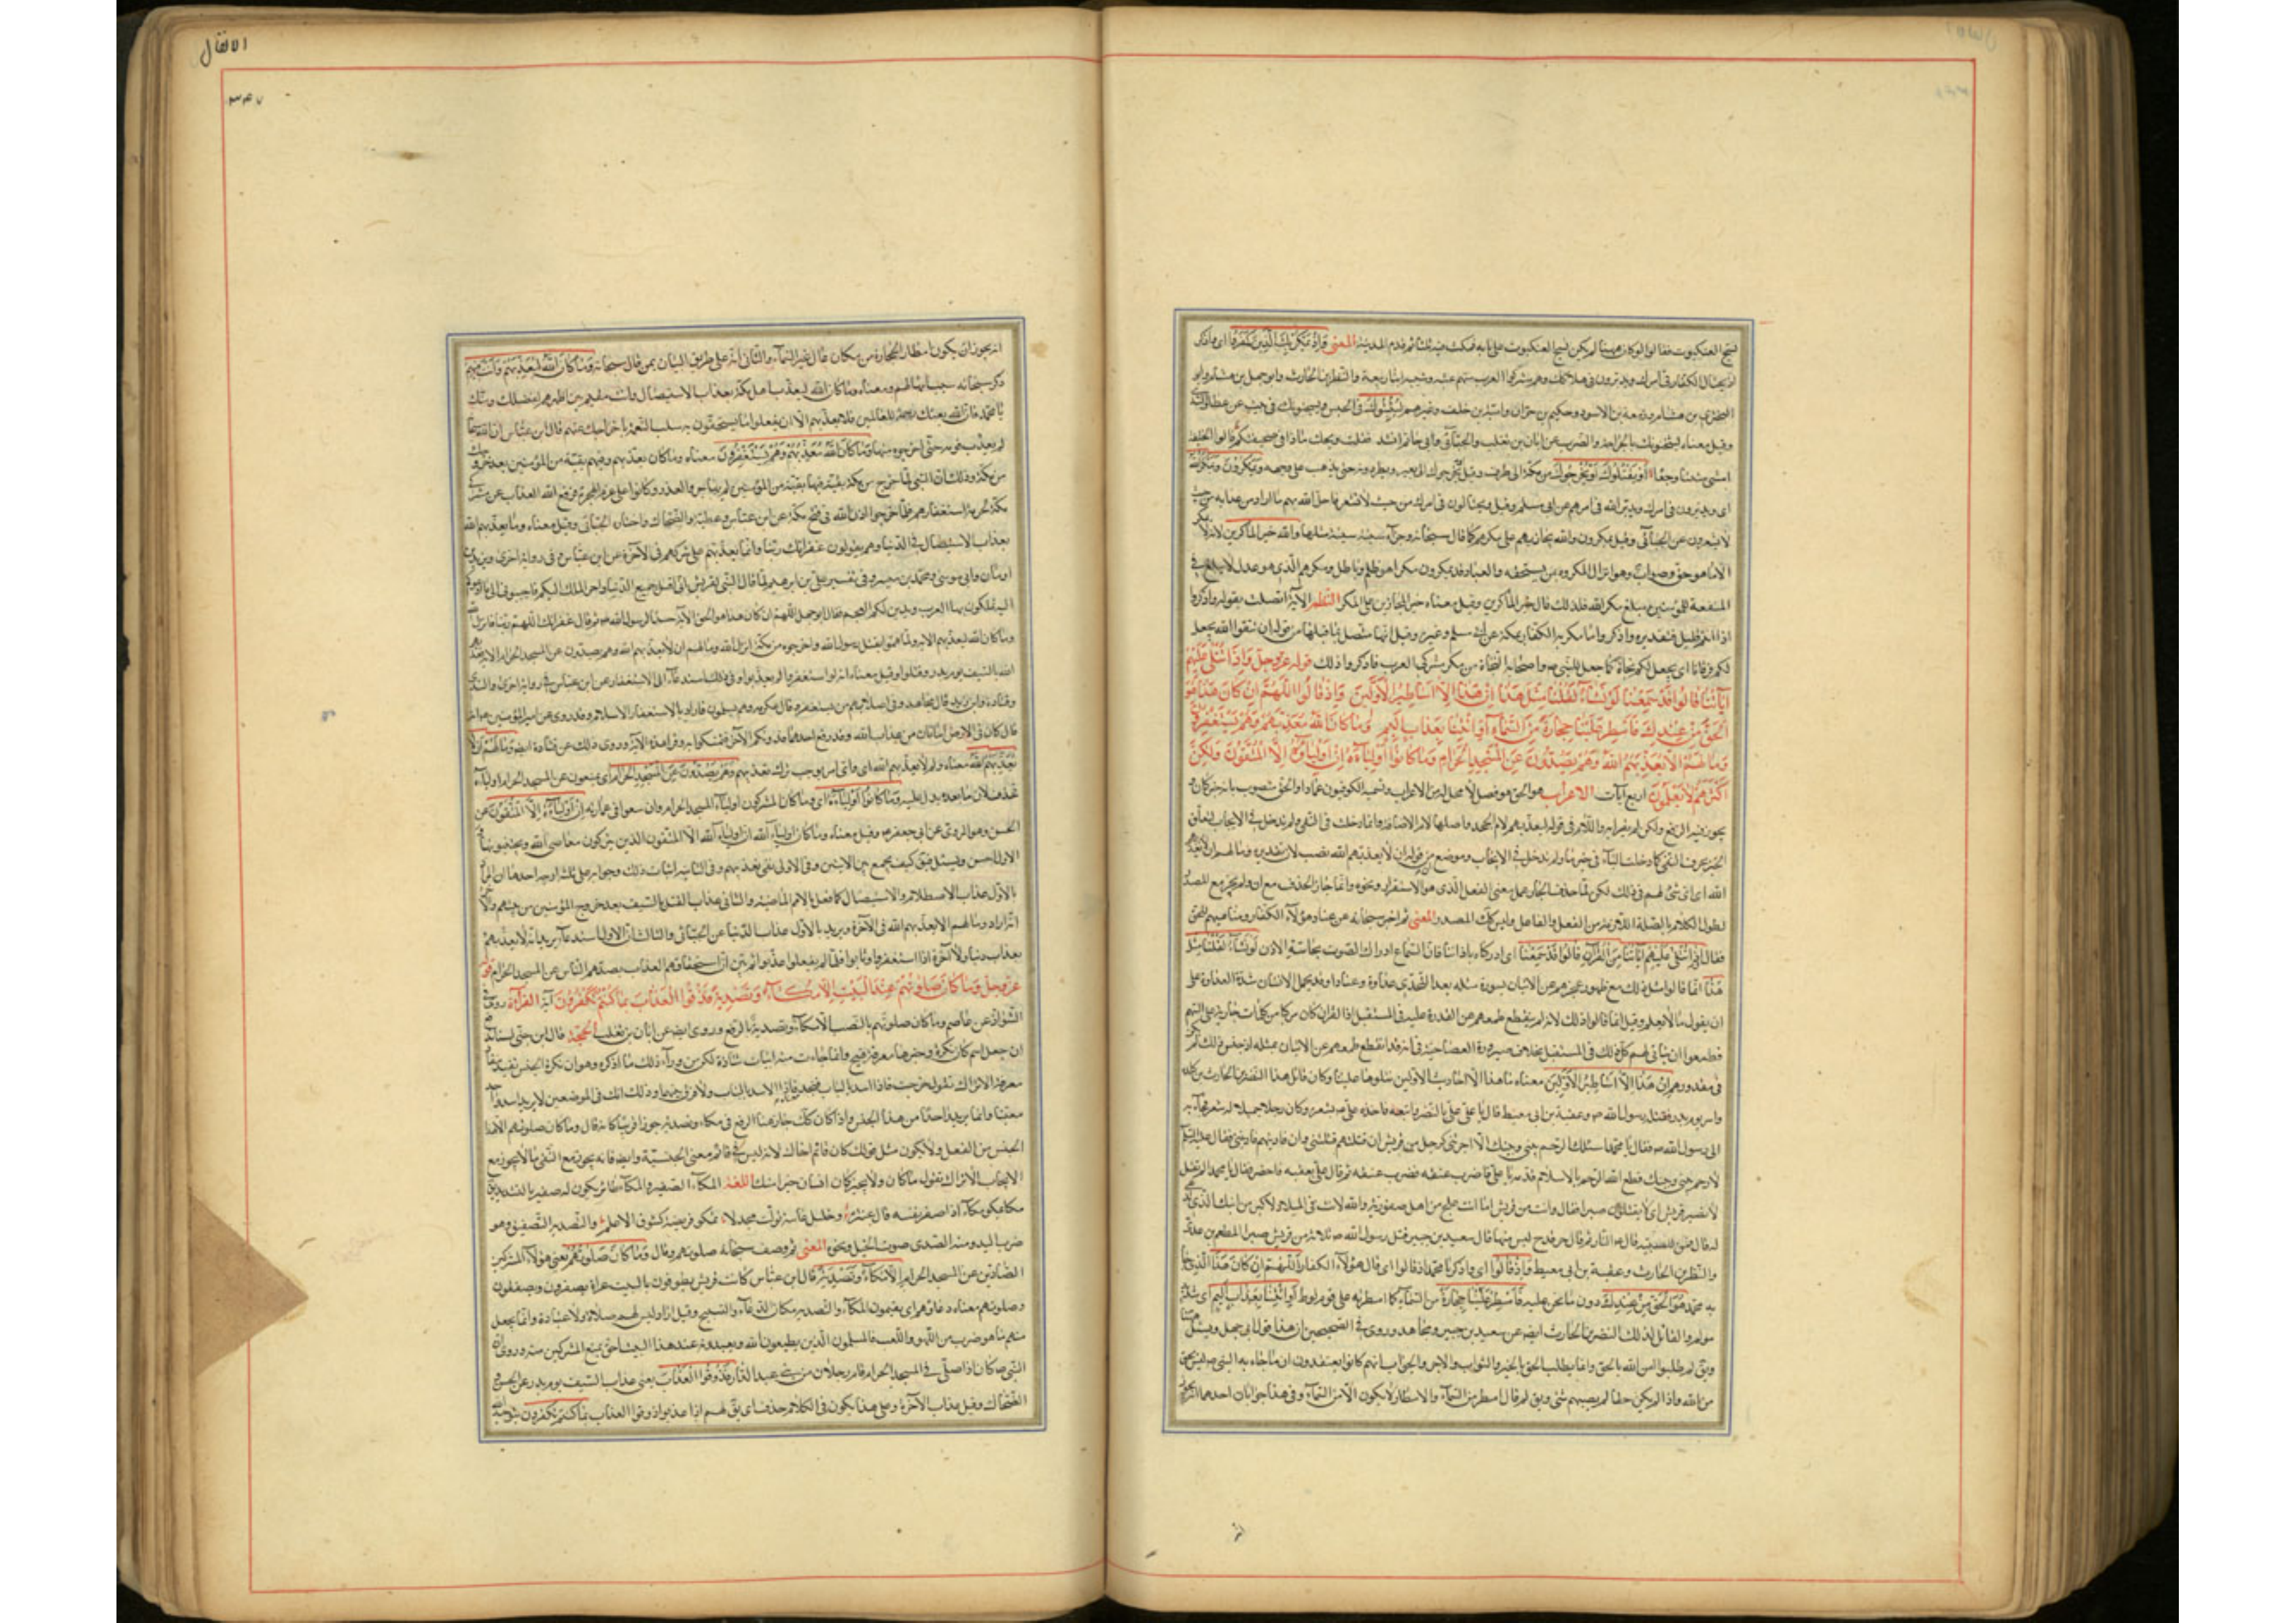 نسج العنكبوت فقالوا لو كان هيهنا لم يكن نسج العنكبوت على بابه فمكث فيه ثلثا ثم قدم المدينة المعنى وَاِذْ يَمْكُرُ بِكَ الَّذينَ كَفَرُوا اى واذكر
اذ يحتال الكفار فى امرك ويدبرون فى هلاكك وهم مشركوا العرب منهم عتبه وشيبه ابنا ربيعة والنضر بن الحارث وابو جهل بن هشام وابو
البخترى بن هشام وزمعة بن الاسود وحكيم بن حزام وامية بن خلف وغيرهم لِيُثْبِتُوكَ
وقيل معناه ليثخنوك بالجراحة والضرب عن ابان بن تغلب والجبائى وابى حاتم وانشد فقلت ويحك ماذا فى صحيفتكم قالوا الخليفة
امسى مثبتا وجعا اَوْ يَقْتُلُوكَ اَوْ يُخْرِجُوكَ من مكة الى طرف
اى ويدبرون فى امرك ويدبر الله فى امرهم عن ابى مسلم وقيل ويحتالون فى امرك من حيث لا تشعر فاحل الله بهم ما اراد من عذابه من حيث
لا يشعرون عن الجبائى وقيل يمكرون والله يجازيهم على مكرهم كما قال سبحانه وجزاء سيئة سيئة مثلها والله خير الماكرين لانه لا
الا ما هو حق وصواب وهو انزال المكروه بمن يستحقه والعباد قد يمكرون مكرا هو ظلم وباطل ومكرهم الذى هو عدل لا يبلغ فى
المنفعة للمؤمنين مبلغ مكر الله فلذلك قال خير الماكرين وقيل معناه خير المجازين على المكر النظم الاية اتصلت بقوله واذكروا
اذ انتم قليل فتقديره واذكر واما مكر بك الكفار بمكة عن ابى مسلم وغيره وقيل انها متصل بما قبلها من قوله ان تتقوا الله يجعل
لكم فرقانا اى يجعل لكم نجاة كما جعل للنبى ص واصحابه النجاة من مكر مشركى العرب فاذكروا ذلك قوله عز وجل وَاِذا تُتْلى عَلَيْهِمْ
آياتُنا قالُوا قَدْ سَمِعْنا لَوْ نَشاءُ لَقُلْنا مِثْلَ هذا اِنْ هذا اِلّا اَساطيرُ الْاَوَّلينَ وَاِذْ قالُوا اللّهُمَّ اِنْ كانَ هذا هُوَ
الْحَقَّ مِنْ عِنْدِكَ فَاَمْطِرْ عَلَيْنا حِجارَةً مِنَ السَّماءِ اَوِ ائْتِنا بِعَذابٍ اَليمٍ وَما كانَ اللهُ مُعَذِّبَهُمْ وَهُمْ يَسْتَغْفِرُونَ
وَما لَهُمْ اَلّا يُعَذِّبَهُمُ اللهُ وَهُمْ يَصُدُّونَ عَنِ الْمَسْجِدِ الْحَرامِ وَما كانُوا اَوْلِياءَهُ اِنْ اَوْلِياؤُهُ اِلَّا الْمُتَّقُونَ وَلكِنَّ
اَكْثَرَهُمْ لا يَعْلَمُونَ اربع آيات الاعراب هو الحق هو فصل لا محل له من الاعراب ويسميه الكوفيون عمادا والحق منصوب بانه خبر كان
يجوز فيه الرفع ولكن لم يقرا به واللام فى قوله ليعذبهم لام الجحد واصلها لام الاضافة وانما دخلت فى النفى ولم تدخل فى الايجاب لتعلق
الخبر بحرف النفى كما دخلت الباء فى خبر ما ولم تدخل فى الايجاب وموضع من قوله ان لا يعذبهم الله نصب لان تقديره وما لهم
الله اى اى شئ لهم فى ذلك لكن لما حذف الجار عمل معنى الفعل الذى هو الاستقرار ونحوه وانما جاز الحذف مع ان ولم يجز مع المصدر
لطول الكلام بالصلة اللازمة من الفعل والفاعل وليس كك المصدر المعنى ثم اخبر سبحانه عن عناد هؤلاء الكفار ومباهتتهم للحق
فقال وَاِذا تُتْلى عَلَيْهِمْ آياتُنا من القرآن قالُوا قَدْ سَمِعْنا اى ادركناه باذاننا فان السماع ادراك الصوت بحاسة الاذن لَوْ نَشاءُ لَقُلْنا مِثْلَ
هذا انما قالوا مثل ذلك مع ظهور عجزهم عن الاتيان بسورة مثله بعد التحدى عداوة وعنادا وقد يحمل الانسان شدة العداوة على
ان يقول ما لا يعلم وقيل انما قالوا ذلك لانه لم ينقطع طمعهم عن القدرة عليه فى المستقبل اذ القران كان مركبا من كلمات جارية على السنتهم
فطمعوا ان يتاتى لهم كل ذلك فى المستقبل بخلاف صيرورة العصا حية فى انه قد انقطع طمعهم عن الاتيان بمثله اذ جنس ذلك لم
فى مقدورهم اِنْ هذا اِلّا اَساطيرُ الْاَوَّلينَ معناه ما هذا الا احاديث الاولين تتلوها علينا وكان قائل هذا النضر بن الحارث بن كلدة
واسر يوم بدر فقتله رسول الله ص وعقبة بن ابى معيط
الى رسول الله ص فقال يا محمد اسئلك بالرحم بينى وبينك الا اجريتنى كرجل من قريش ان قتلتهم قتلتنى وان فاديتهم فاديتنى فقال عليه السلام
لا رحم بينى وبينك قطع الله الرحم بالاسلام قدمه يا على فاضرب عنقه فضرب عنقه ثم قال يا على بعقبة فاحضر فقال يا محمد الم تقل
لا تصبر قريش
والنضر بن الحارث وعقبة بن ابى معيط وَاِذْ قالُوا اى واذكر يا محمد اذ قالوا اى قال هؤلاء الكفار اللّهُمَّ اِنْ كانَ هذا الذى جاء
به محمد هُوَ الْحَقَّ مِنْ عِنْدِكَ دون ما نحن عليه فَاَمْطِرْ عَلَيْنا حِجارَةً مِنَ السماء كما امطرته على قوم لوط اَوِ ائْتِنا بِعَذابٍ اَليمٍ اى شديد
مولم والقائل لذلك النضر بن الحارث ايضا عن سعيد بن جبير ومجاهد وروى فى الصحيحين ان هذا قول ابى جهل ويسئل
ويق لم طلبوا من الله بالحق وانما يطلب بالحق الخير والثواب والاجر والجواب انهم كانوا يعتقدون ان ما جاء به النبى ص ليس بحق
من الله واذا لم يكن حقا لم يصبهم شئ ويق لم قال امطر من السماء والامطار لا يكون الا من السماء وفى هذا جوابان احدهما
الانفال
٣٤٧
انه يجوز ان يكون امطار الحجارة من مكان عال غير السماء والثانى انه على طريق البيان بمن قال سبحانه وَما كانَ اللهُ لِيُعَذِّبَهُمْ وَاَنْتَ فيهِمْ
ذكر سبحانه سبب امهالهم ومعناه وما كان الله ليعذب اهل مكة بعذاب الاستيصال وانت مقيم بين اظهرهم لفضلك
يا محمد فان الله بعثك رحمة للعالمين فلا يعذبهم الا ان يفعلوا ما يستحقون به سلب النعمة باخراجك عنهم قال ابن عباس ان الله
لم يعذب قومه حتى اخرجوه منها وَما كانَ اللهُ مُعَذِّبَهُمْ وَهُمْ يَسْتَغْفِرُونَ معناه وما كان يعذبهم وفيهم بقية من المؤمنين بعد خروجك
من مكة وذلك ان النبى لما خرج من مكة بقيت فيها بقية من المؤمنين لم يهاجروا لعذر وكانوا على عزم الهجرة فرفع الله العذاب عن مشركى
مكة لحرمة استغفارهم فلما خرجوا اذن الله فى فتح مكة عن ابن عباس وعطية والضحاك واختاره الجبائى وقيل معناه وما يعذبهم الله
بعذاب الاستيصال فى الدنيا وهم يقولون غفرانك ربنا وانما يعذبهم على شركهم فى الاخرة عن ابن عباس فى رواية اخرى
رومان وابى موسى ومحمد بن مبشر وفى تفسير على بن ابرهيم لما قال النبى لقريش
وما كان الله ليعذبهم الاية ولما هموا بقتل رسول الله واخرجوه من مكة انزل الله وما لهم ان لا يعذبهم الله وهم يصدون عن المسجد الحرام الاية
الله بالسيف يوم بدر وقتلوا وقيل معناه انهم لو استغفروا لم يعذبوا وفى ذلك استدعاء الى الاستغفار عن ابن عباس فى رواية اخرى والسدى
وقتادة وابن زيد قال مجاهد وفى اصلابهم من يستغفر وقال عكرمة وهم يسلمون فاراد بالاستغفار الاسلام وقد روى عن امير المؤمنين
قال كان فى الارض امانان من عذاب الله وقد رفع احدهما فدونكم الاخر فتمسكوا به وقرا هذه الاية وروى ذلك عن قتادة ايضا وَما لَهُمْ اَلّا
يُعَذِّبَهُمُ اللهُ معناه ولم لا يعذبهم الله واى امر يوجب ترك تعذيبهم وَهُمْ يَصُدُّونَ عَنِ الْمَسْجِدِ الْحَرامِ اى يمنعون عن المسجد الحرام اولياءه
فحذف لان ما بعده يدل عليه وَما كانُوا اَوْلِياءَهُ اى وما كان المشركون اولياء المسجد الحرام وان سعوا فى عمارته اِنْ اَوْلِياؤُهُ اِلَّا الْمُتَّقُونَ عن
الحسن وهو المروى عن ابى جعفر ع وقيل معناه وما كانوا اولياء الله ان اولياء الله الا المتقون الذين يتركون معاصى الله ويجتنبونها
الاول احسن ويسئل فيق كيف يجمع بين الايتين وفى الاولى نفى تعذيبهم وفى الثانية اثبات ذلك وجوابه على ثلثة اوجه احدها ان المراد
بالاول عذاب الاصطلام والاستيصال كما فعل بالامم الماضية والثانى عذاب القتل بالسيف بعد خروج المؤمنين من بينهم
انه اراد وما لهم الا يعذبهم الله فى الاخرة ويريد بالاول عذاب الدنيا عن الجبائى والثالث ان الاول استدعاء
بعذاب دنيا ولا آخرة اذا استغفروا وتابوا فلما لم يفعلوا عذبوا ثم بين ان استحقاقهم العذاب بصدهم الناس عن المسجد الحرام قوله
عز وجل وَما كانَ صَلاتُهُمْ عِنْدَ الْبَيْتِ اِلّا مُكاءً وَتَصْدِيَةً فَذُوقُوا الْعَذابَ بِما كُنْتُمْ تَكْفُرُونَ آية القراءة روى فى
الشواذ عن عاصم وما كان صلوتهم بالنصب الا مكاء وتصدية بالرفع وروى ايضا عن ابان بن تغلب الحجة قال ابن جنى لسنا
ان جعل اسم كان نكرة وخبرها معرفة قبيح وانما جاءت منه ابيات شاذة لكن من وراء ذلك ما اذكره وهو ان نكرة الجنس تفيد مفاد
معرفة الا تراك تقول خرجت فاذا اسد بالباب فتجد فاذا الاسد بالباب ولا فرق بينهما وذلك انك فى الموضعين لا يريد اسدا واحدا
معينا وانما يريد احدا من هذا الجنس واذا كان كك جاز هنا الرفع فى مكاء وتصدية جوازا قريبا كانه قال وما كان صلوتهم الا هذا
الجنس من الفعل ولا يكون مثل قولك كان قائم اخاك لانه ليس فى قائم معنى الجنسية وايضا فانه يجوز مع النفى ما لا يجوز مع
الايجاب الا تراك تقول ما كان انسان خيرا منك ولا يجيز كان انسان خيرا منك اللغة المكاء الصفير والمكاء طائر يكون له صفير بالتشديد
مكا يمكو مكاء اذا صفر بفيه قال عنترة وحليل غانية تركت مجدلا تمكو فريصته كشدق الاعلم والتصدية التصفيق وهو
ضرب اليد ومنه الصدى صوت الجبل ونحوه المعنى ثم وصف سبحانه صلوتهم وقال وَما كانَ صَلاتُهُمْ يعنى هؤلاء المشركين
الصادين عن المسجد الحرام اِلّا مُكاءً وَتَصْدِيَةً قال ابن عباس كانت قريش يطوفون بالبيت عراة يصفرون ويصفقون
وصلوتهم معناه دعاؤهم اى يقيمون المكاء والتصدية مكان الدعاء والتسبيح وقيل اراد ليس لهم صلاة ولا عبادة وانما يحصل
منهم ما هو ضرب من اللهو واللعب فالمسلمون الذين يطيعون الله ويعبدونه عند هذا البيت احق بمنع المشركين منه وروى ان
النبى ص كان اذا صلى فى المسجد الحرام قام رجلان من بنى عبد الدار فَذُوقُوا الْعَذابَ يعنى عذاب السيف يوم بدر عن الحسن و
الضحاك وقيل عذاب الآخرة وعلى هذا يكون فى الكلام حذف اى يق لهم اذا عذبوا ذوقوا العذاب بما كنتم تكفرون بتوحيد الله